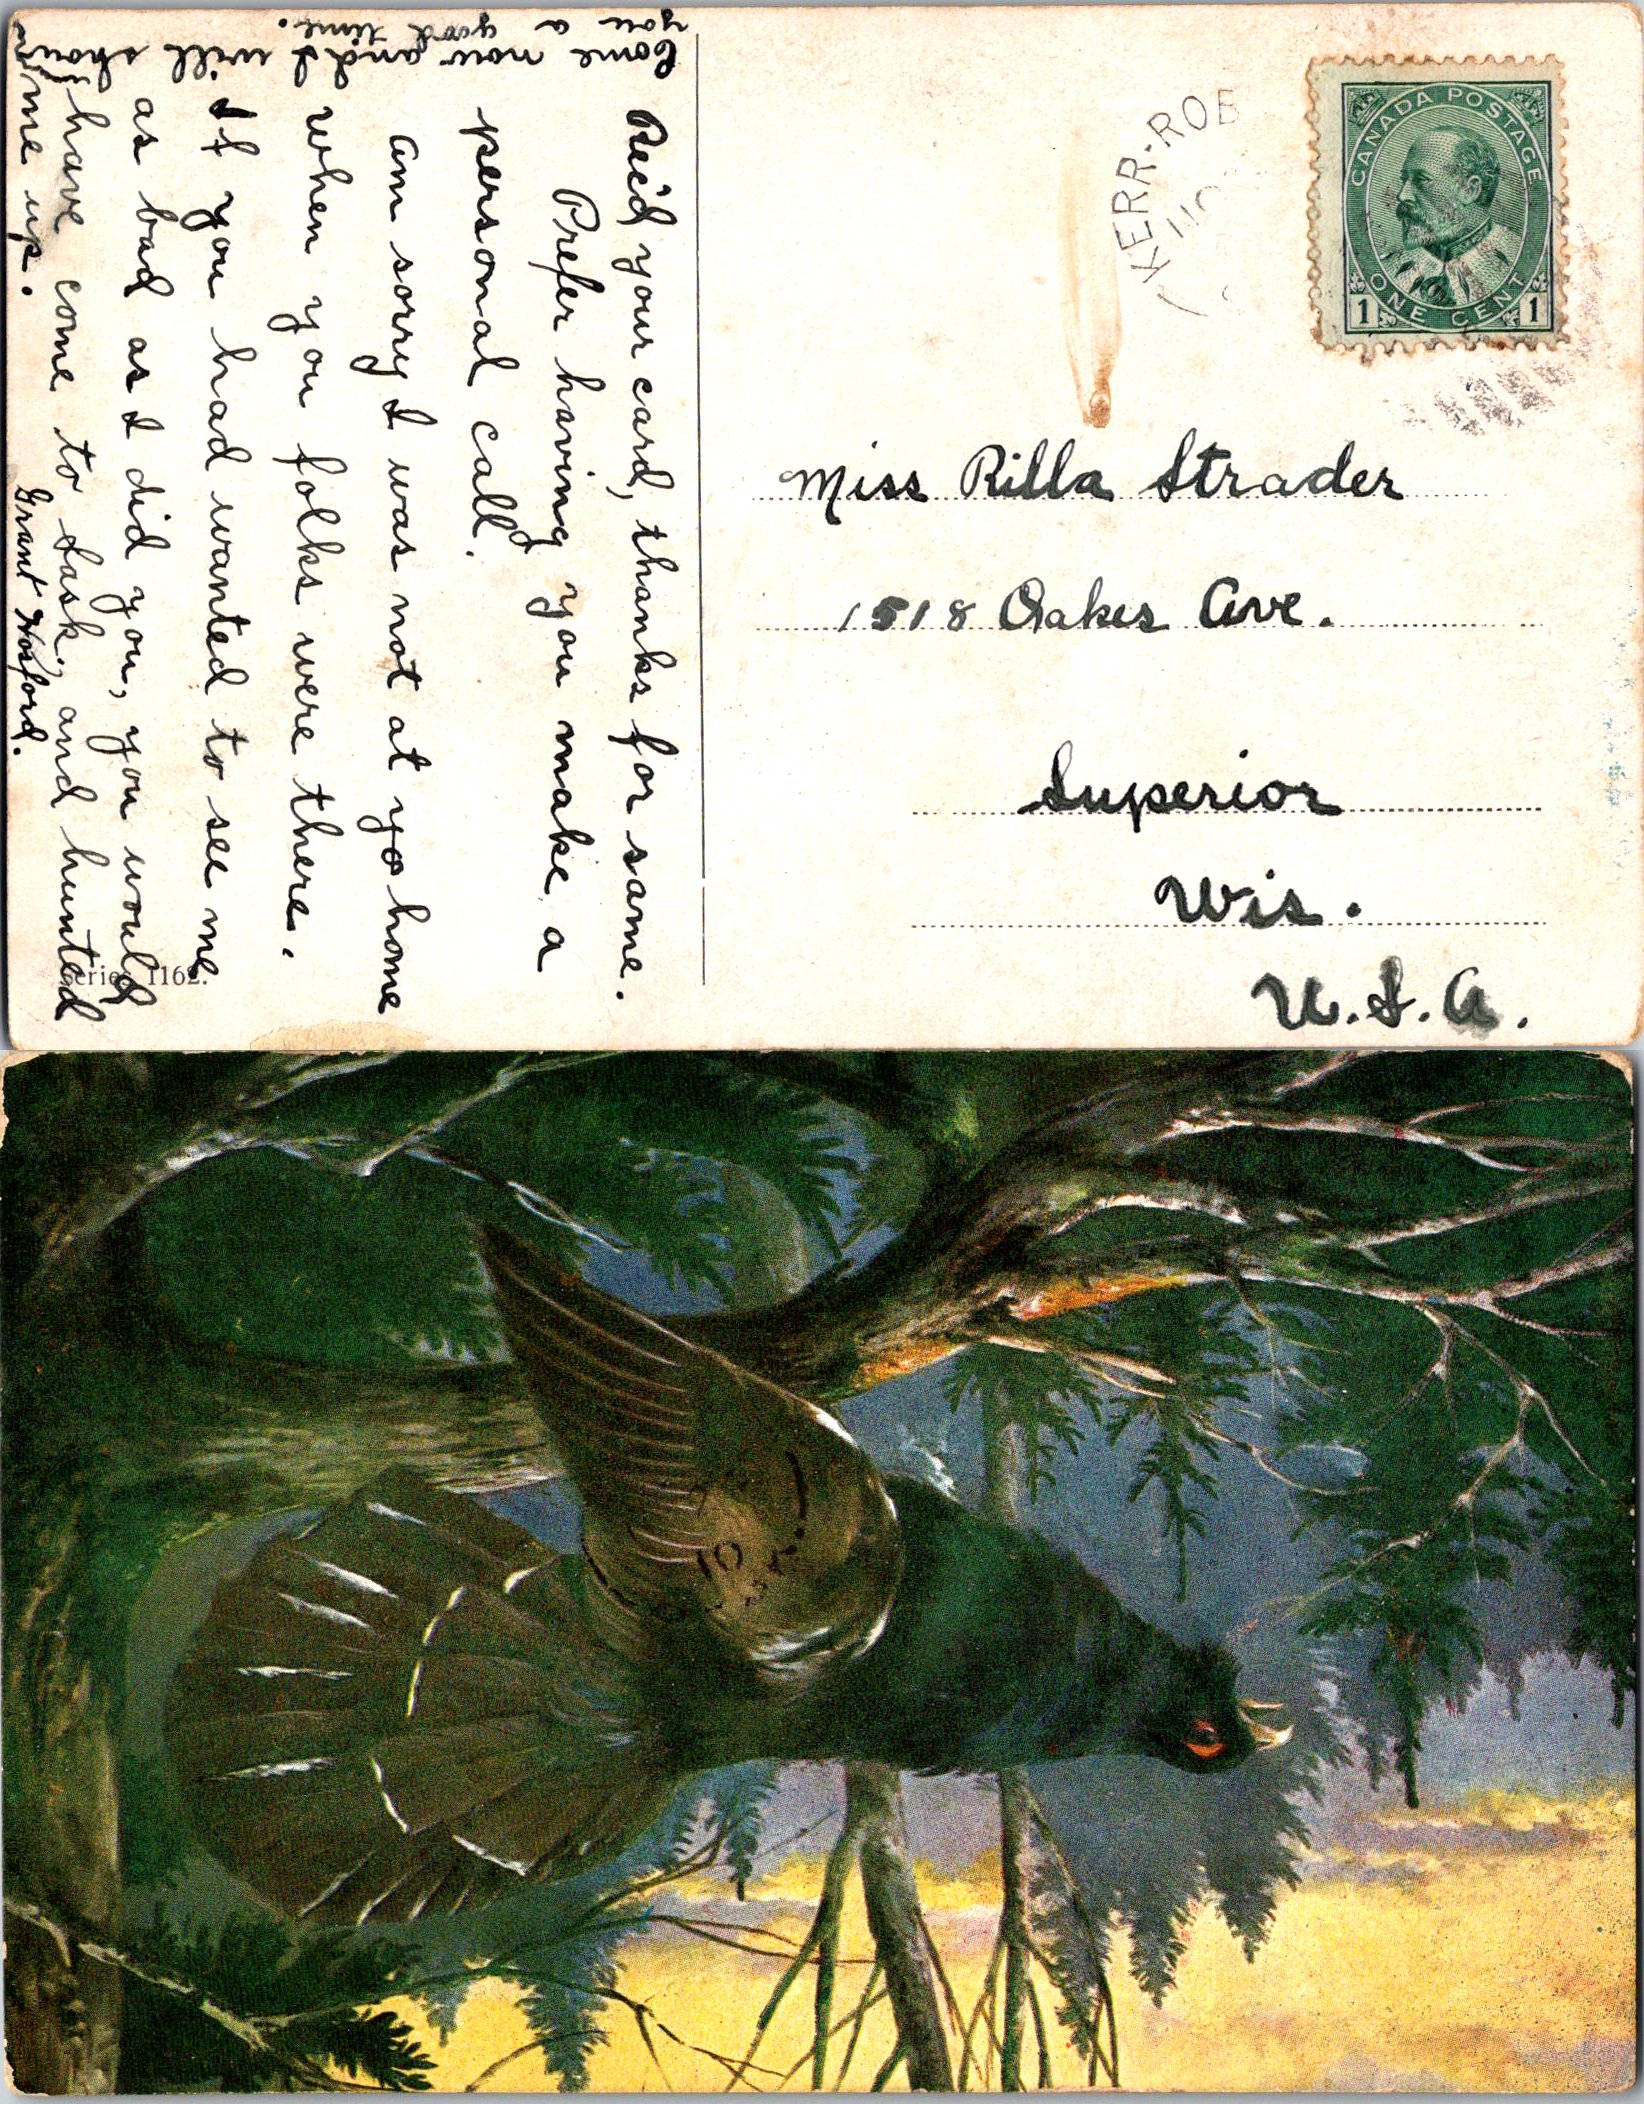 Rec'd your card, thanks for same.
Prefer having you make a
personal call.
Am sorry I was not at yo home
when you folks were there.
If you had wanted to see me
as bad as I did you, you would
have come to task, and hunted
me up.
Grant Hosford.
Come now and I will show
you a good time.
Series 1162.
KERR-ROB
CANADA POSTAGE
ONE CENT
1 1
Miss Rilla Strader
1518 Oakes Ave.
Superior
Wis.
U.S.A.
10